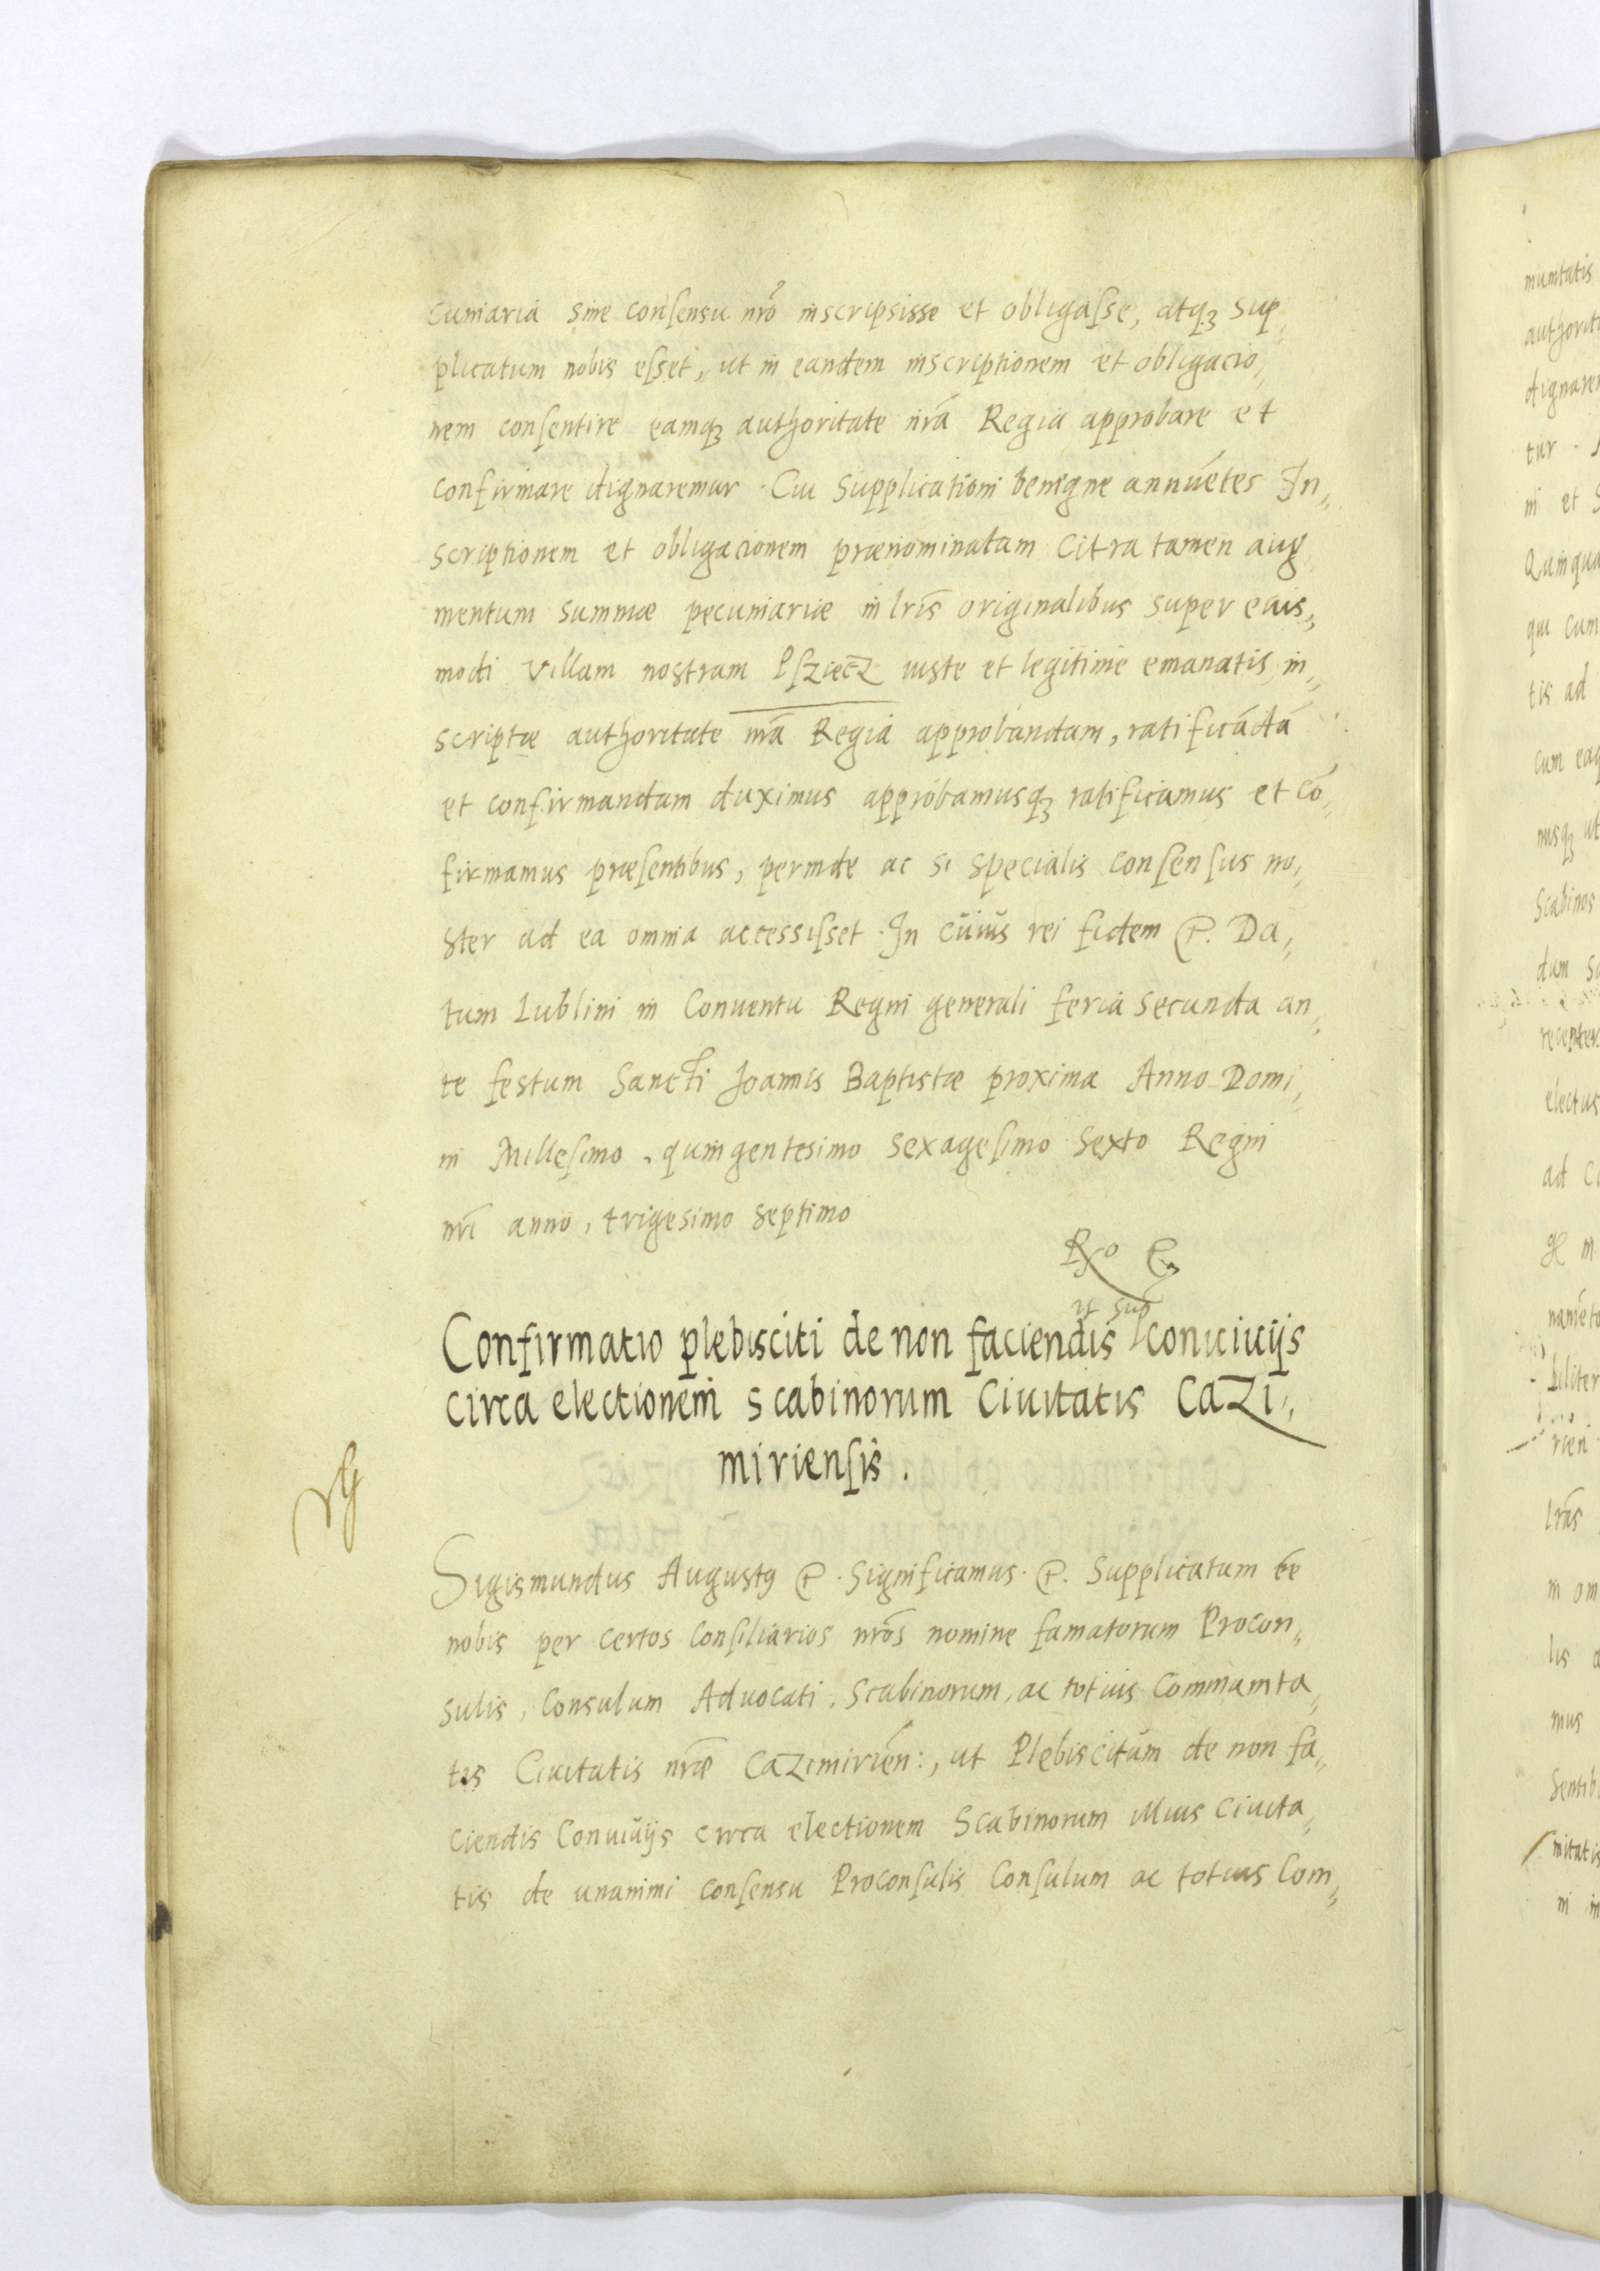 cuniaria sine consensu nr̃o inscripsisse et obligasse, atq₃ sup„
plicatum nobis esset, ut in eandem inscriptionem et obligacio„
nem consentire eamq₃ authoritate nr̃a Regia approbare et
confirmare dignaremur. Cui Supplicationi benigne annuẽtes In„
scriptionem et obligacionem prænominatam citra tamen aug
mentum summæ pecuniariæ in lr̃is originalibus super eius„
modi Villam nostram Psziecz iuste et legitime emanatis in„
scriptæ authoritate nr̃a Regia approbandam, ratificãdã
et confirmandam duximus approbamusq₃ ratificamus et cõ„
firmamus præsentibus, perinde ac si specialis consensus no„
ster ad ea omnia accessisset. In cuius rei fidem &. Da„
tum Lublini in Conuentu Regni generali feria secunda an„
te festum Sancti Joannis Baptistæ proxima Anno Domi„
ni Millesimo, quingentesimo sexagesimo sexto Regni
nr̃i anno, trigesimo septimo
ut sup
Confirmatio plebisciti de non faciendis conuiuijs
circa electionem scabinorum Ciuitatis Cazi„
miriensis.
Sigismundus Augustꝯ &. Significamus. &. Supplicatum ẽe
nobis per certos Consiliarios nr̃os nomine famatorum Procon„
sulis, Consulum Aduocati, Scabinorum, ac totius Communita„
tis Ciuitatis nr̃æ Cazimirien̄:, ut Plebiscitum de non fa„
ciendis Conuiuijs circa electionem Scabinorum illius Ciuita„
tis de unanimi consensu Proconsulis Consulum ac totius Com„